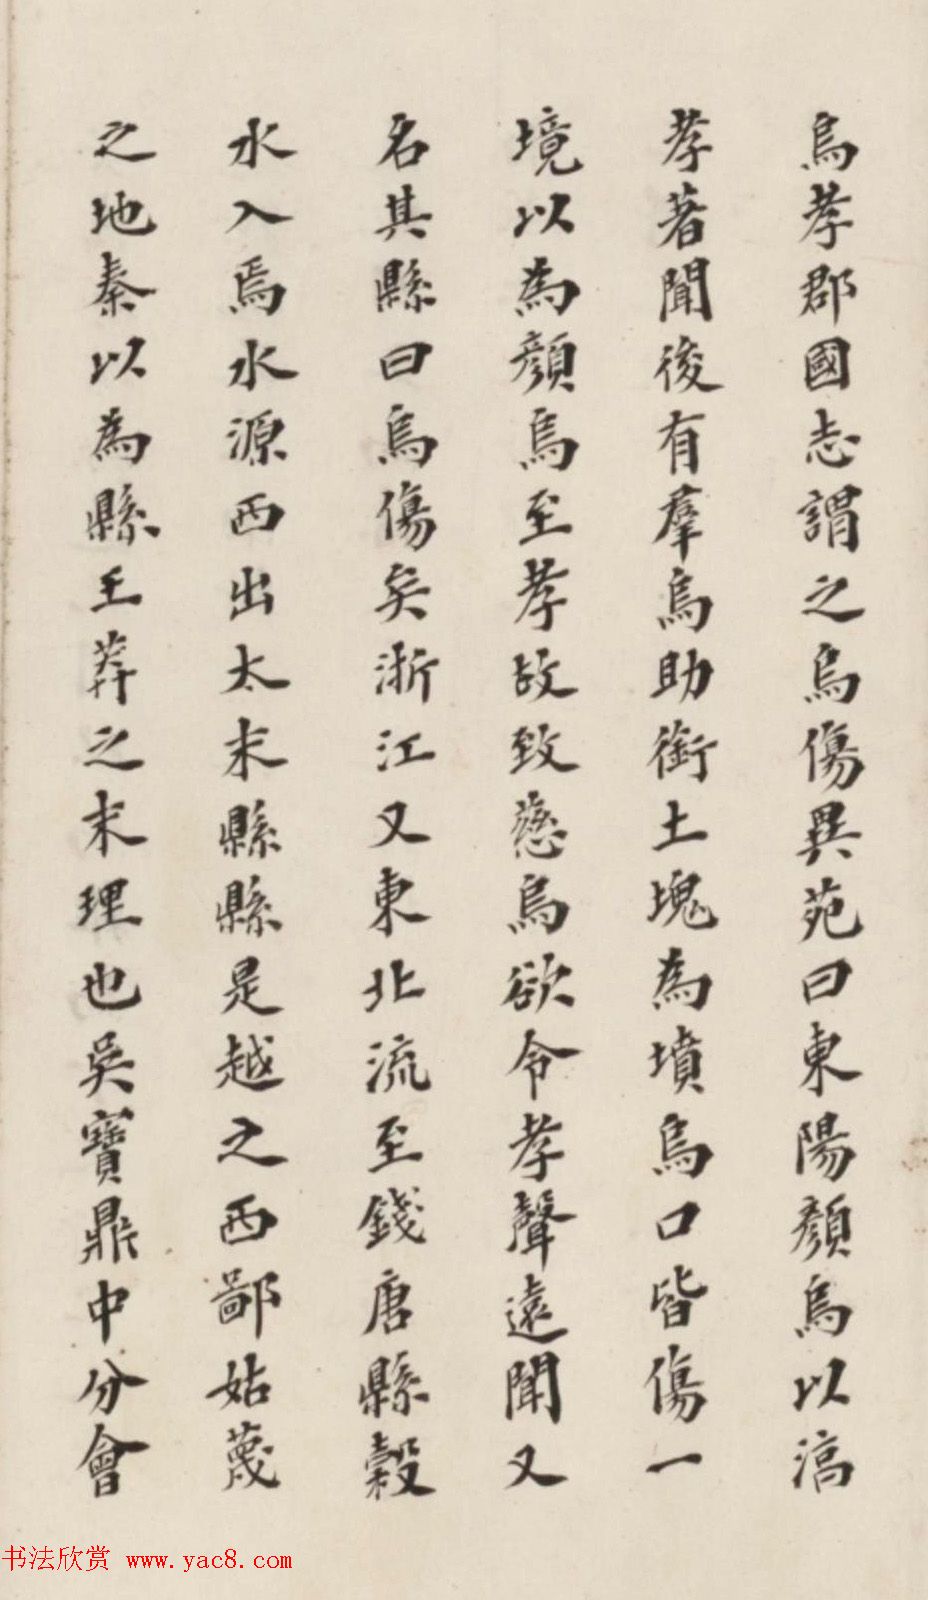 烏孝郡國志謂之烏傷異苑曰東陽顏烏以淳
孝著聞後有羣烏助銜土塊為墳烏口皆傷一
境以為顏烏至孝故致慈烏欲令孝聲遠聞又
名其縣曰烏傷矣浙江又東北流至錢唐縣縠
水入焉水源西出太末縣縣是越之西鄙姑蔑
之地秦以為縣王莽之末理也吳寶鼎中分會
书法欣赏 www.yac8.com